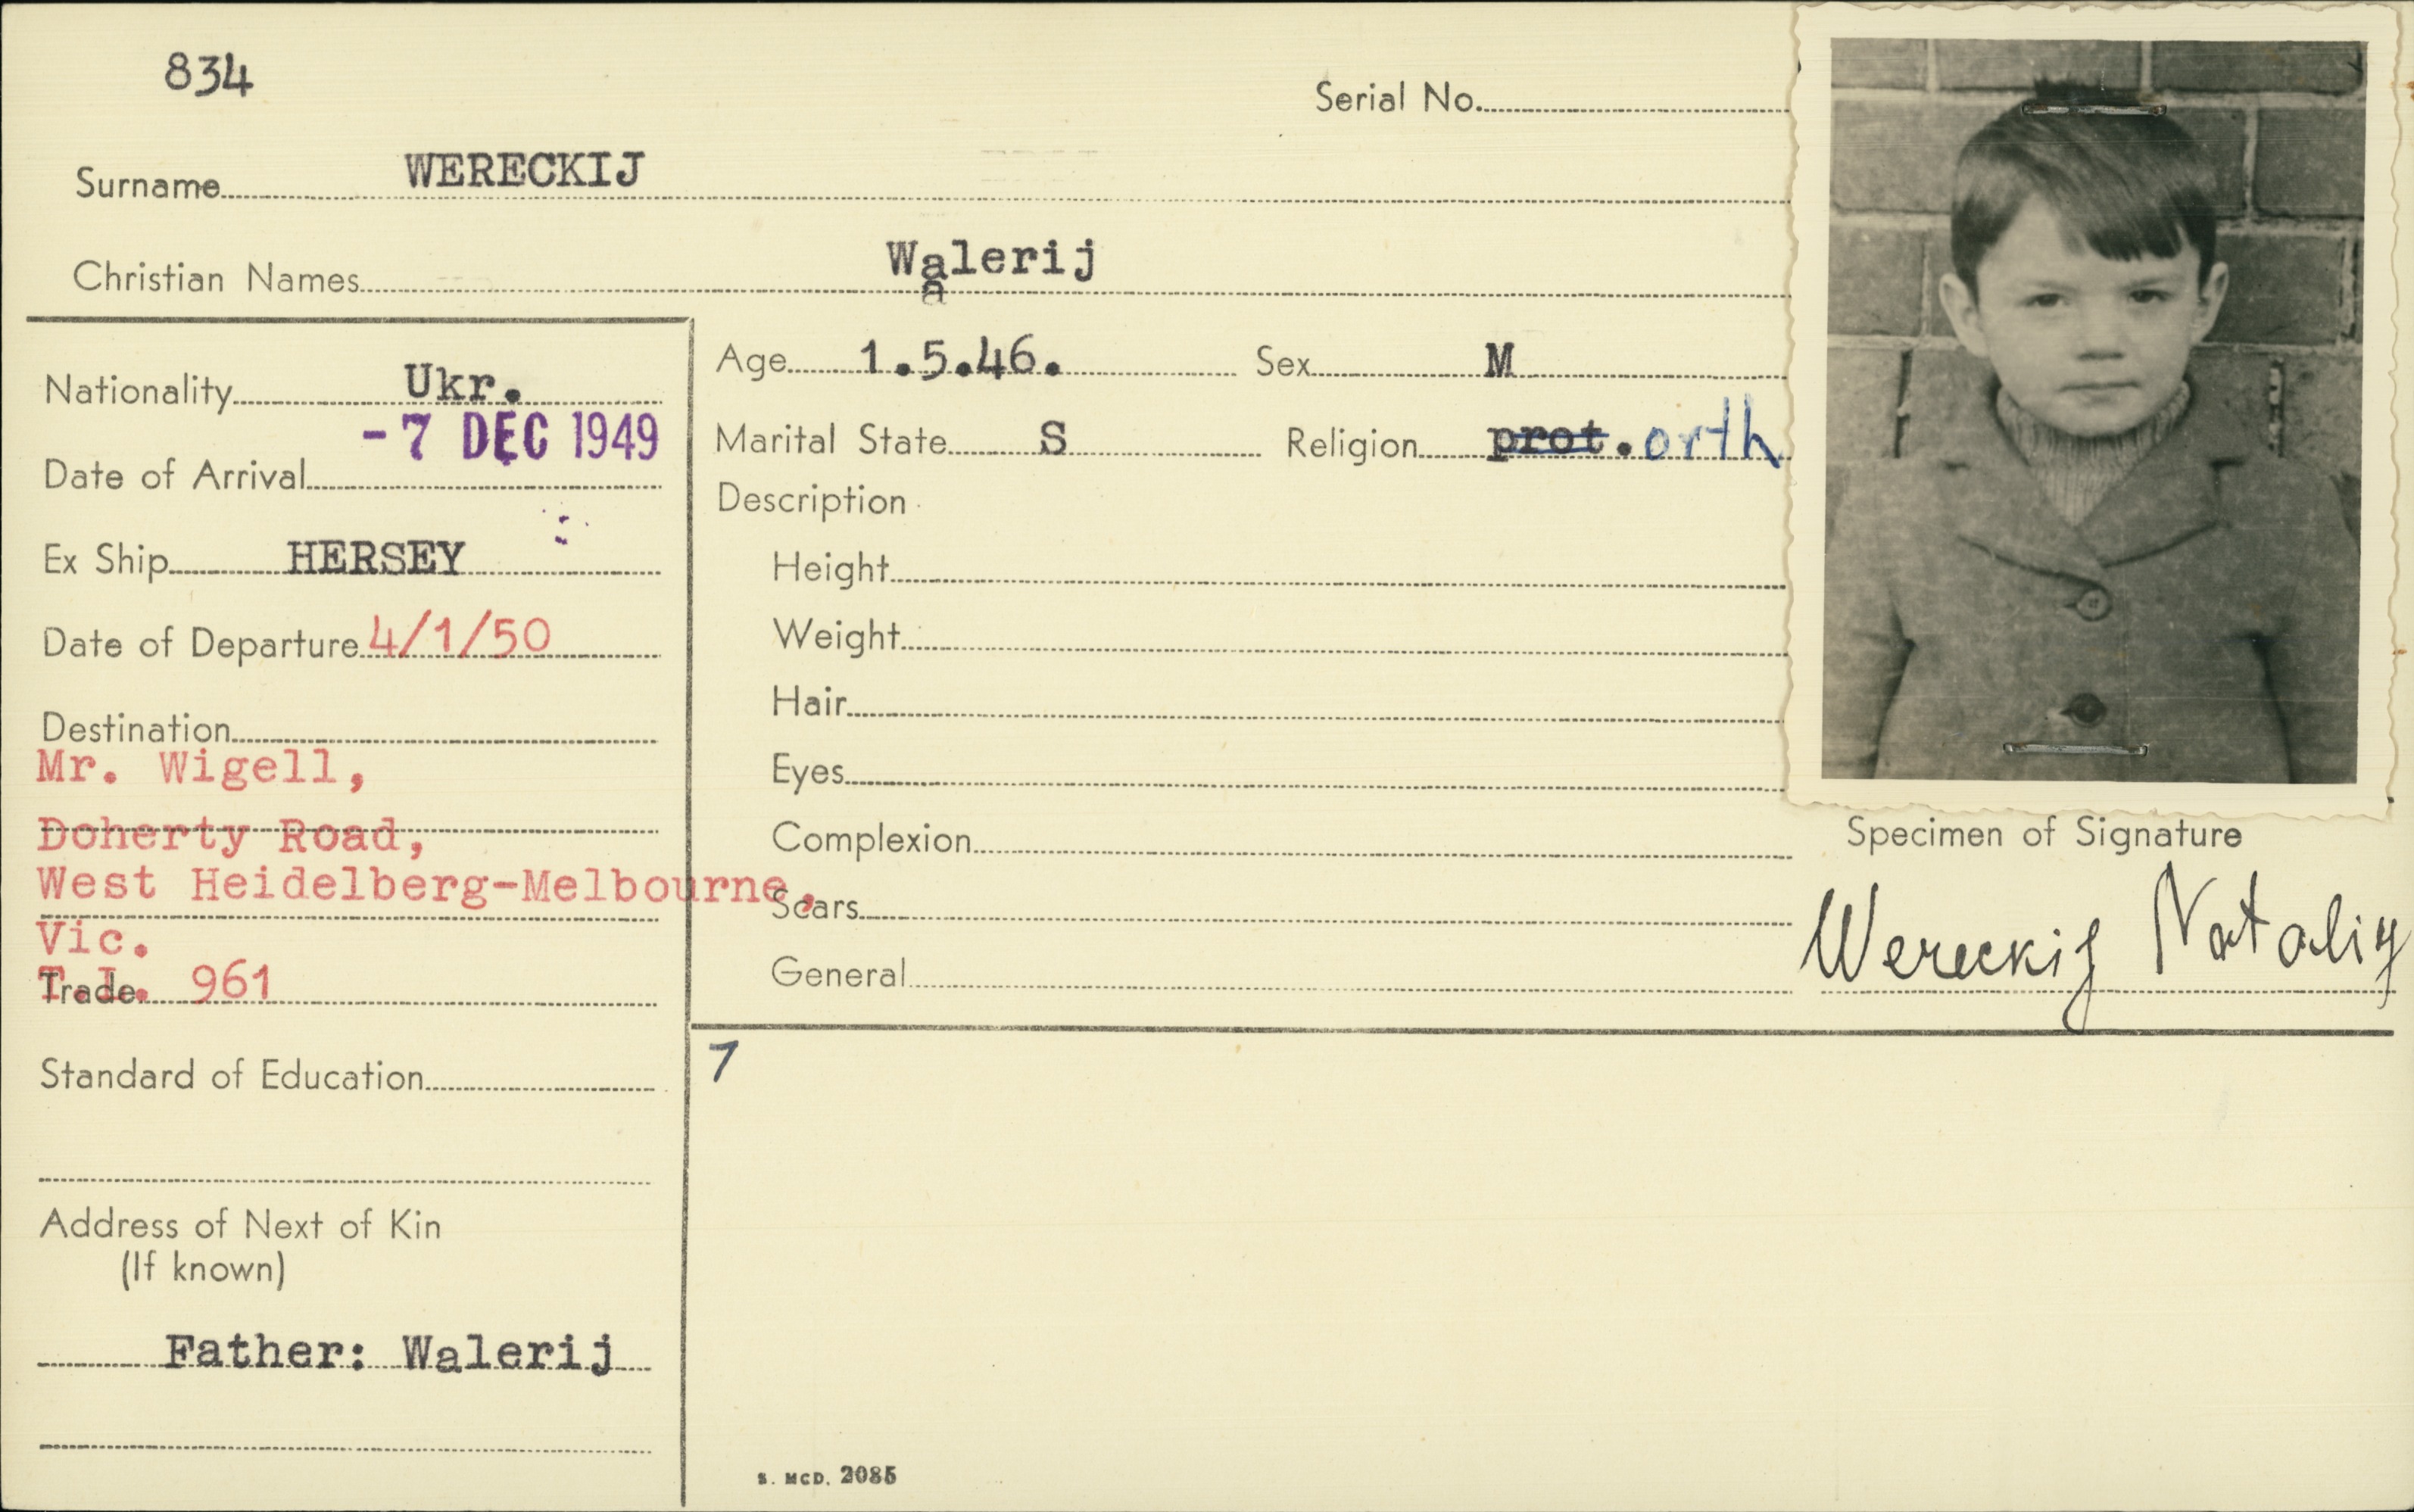 834
Serial No.
Surname WERECKIJ
Christian Names Walerij
Nationality Ukr.
Date of Arrival -7 DEC 1949
Ex Ship HERSEY
Date of Departure 4/1/50
Destination
Mr. Wigell,
Doherty Road,
West Heidelberg-Melbourne,
Vic.
T.L. 961
Trade
Standard of Education
Address of Next of Kin
(If known)
Father: Walerij
Age 1.5.46. Sex M
Marital State S Religion prot. orth
Description
Height
Weight
Hair
Eyes
Complexion
Scars
General
Specimen of Signature
Wereckij Nataliy
7
S. MCD. 2085